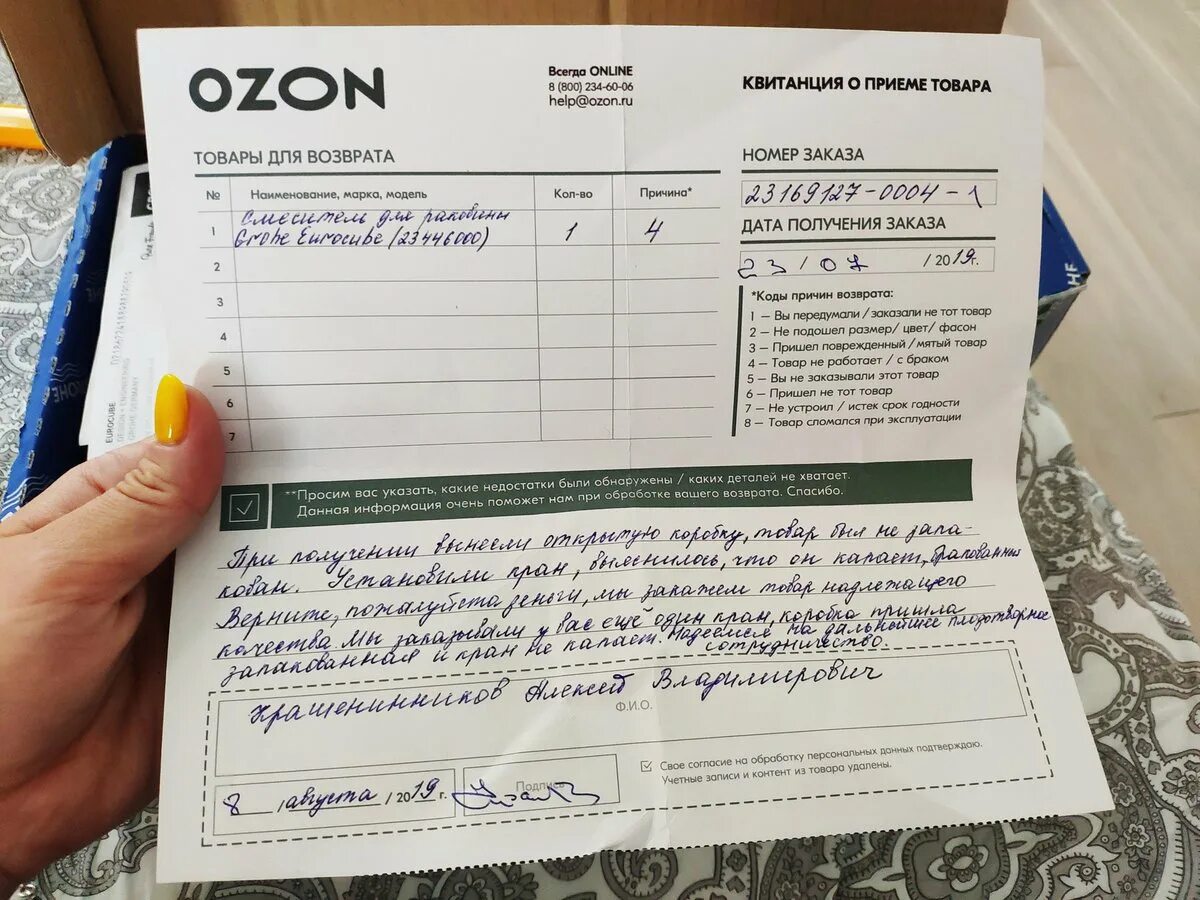 OZON
Всегда ONLINE
8 (800) 234-60-06
help@ozon.ru
КВИТАНЦИЯ О ПРИЕМЕ ТОВАРА
ТОВАРЫ ДЛЯ ВОЗВРАТА
№ Наименование, марка, модель Кол-во Причина*
1 Смеситель для раковины
Grohe Eurocube (23446000) 1 4
2
3
4
5
6
7
НОМЕР ЗАКАЗА
23169127-0004-1
ДАТА ПОЛУЧЕНИЯ ЗАКАЗА
23 / 07 / 2019г.
*Коды причин возврата:
1 – Вы передумали / заказали не тот товар
2 – Не подошел размер/ цвет/ фасон
3 – Пришел поврежденный /мятый товар
4 – Товар не работает / с браком
5 – Вы не заказывали этот товар
6 – Пришел не тот товар
7 – Не устроил / истек срок годности
8 – Товар сломался при эксплуатации
**Просим вас указать, какие недостатки были обнаружены / каких деталей не хватает.
Данная информация очень поможет нам при обработке вашего возврата. Спасибо.
При получении вынесли открытую коробку, товар был не запа-
кован. Установили кран, выяснилось, что он капает, бракованный
Верните, пожалуйста деньги, мы закажем товар надлежащего
качества. Мы заказывали у вас ещё один кран, коробка пришла
запакованная и кран не капает. Надеемся на дальнейшее плодотворное
сотрудничество.
Крашенинников Алексей Владимирович
Ф.И.О.
8 /августа / 2019 г.
Подпись
Свое согласие на обработку персональных данных подтверждаю.
Учетные записи и контент из товара удалены.
EUROCUBE
DESIGN + ENGINEERING
GROHE GERMANY